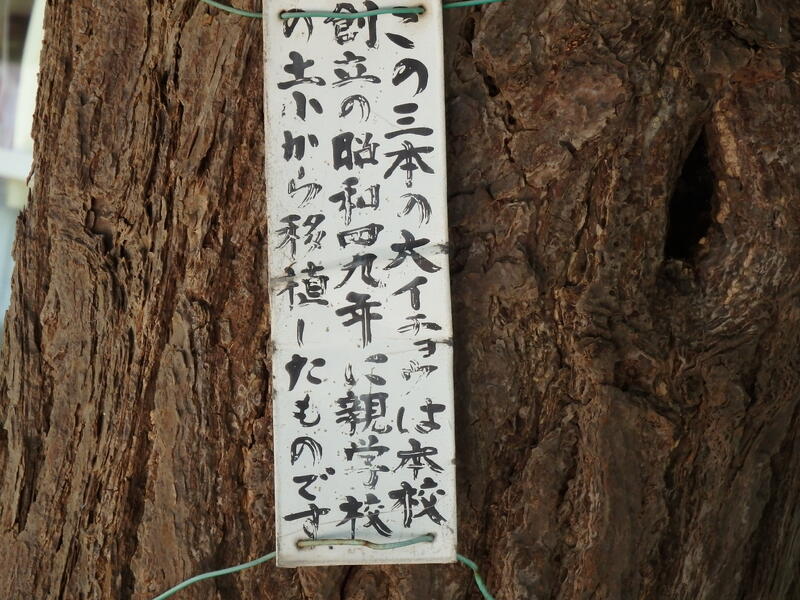 この三本の大イチョウは本校
創立の昭和四九年に親学校
の土小から移植したものです